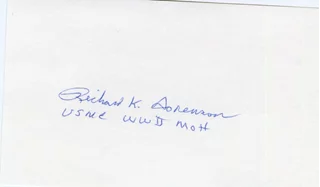 Richard K. Sorenson
USMC WWII MOH